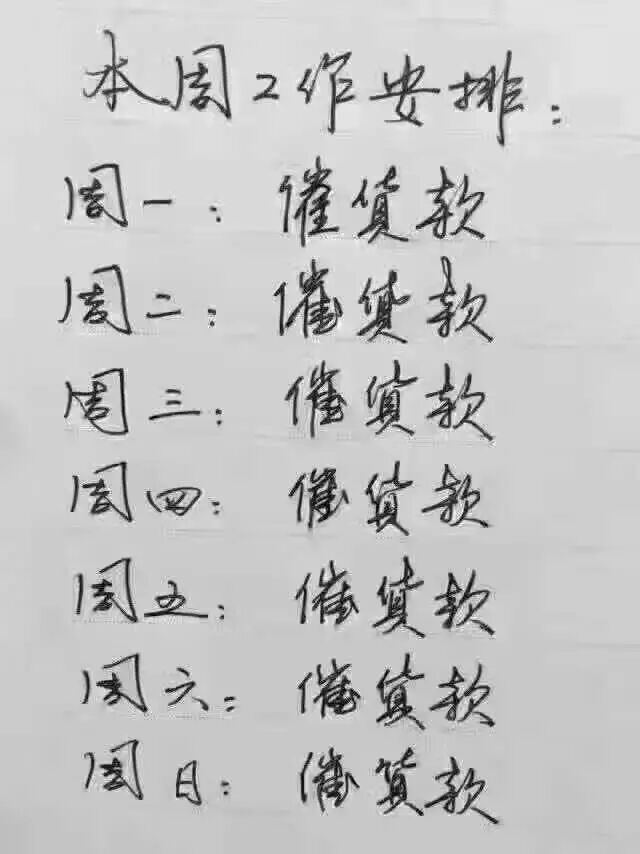 本周工作安排：
周一：催货款
周二：催货款
周三：催货款
周四：催货款
周五：催货款
周六：催货款
周日：催货款